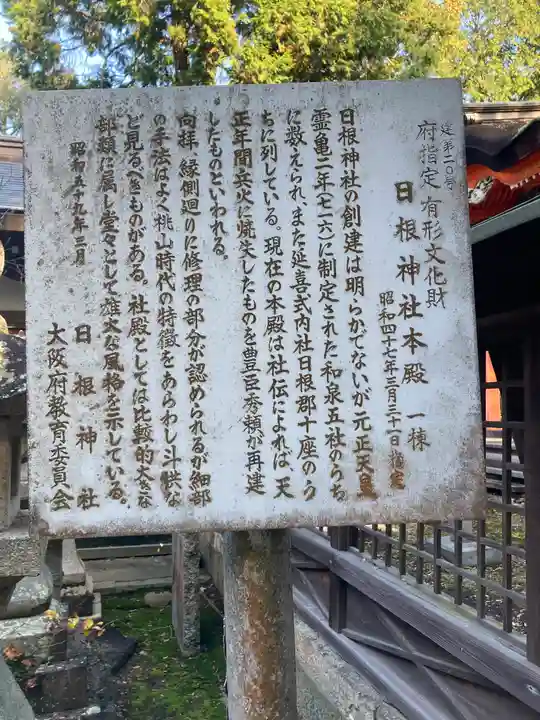 建第二〇号
府指定 有形文化財
日根神社本殿 一棟
昭和四十七年三月三十一日指定
日根神社の創建は明らかでないが元正天皇
霊亀二年(七一六)に制定された和泉五社のうち
に数えられ、また延喜式内社日根郡十座のう
ちに列している。現在の本殿は社伝によれば、天
正年間兵火に焼失したものを豊臣秀頼が再建
したものといわれる。
向拝、縁側廻りに修理の部分が認められるが細部
の手法はよく桃山時代の特徴をあらわし斗供な
ど見るべきものがある。社殿としては比較的大きな
部類に属し堂々として雄大な風格を示している。
昭和五十九年三月
日根神社
大阪府教育委員会